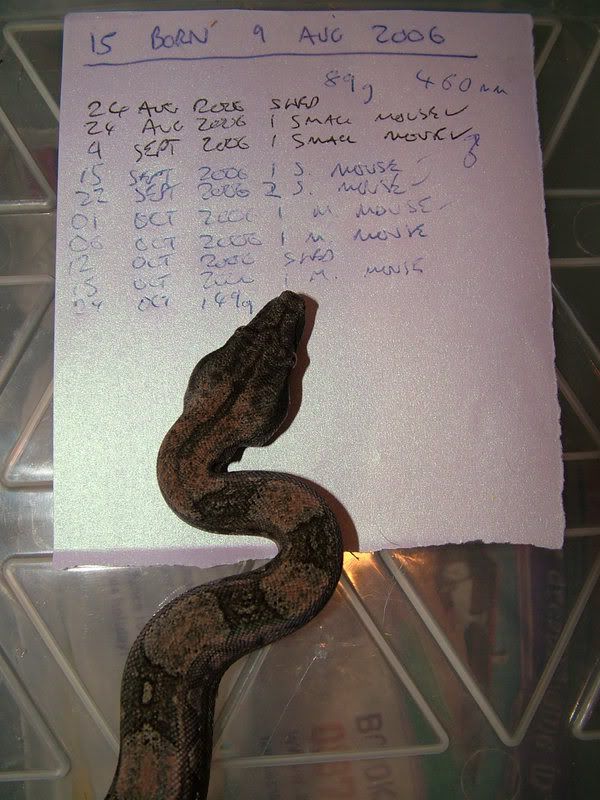 15 BORN 9 AUG 2006
89g 460mm
24 AUG 2006 SHED
24 AUG 2006 1 SMALL MOUSE ✓
4 SEPT 2006 1 SMALL MOUSE ✓
15 SEPT 2006 1 S. MOUSE ✓
22 SEPT 2006 2 S. MOUSE ✓
01 OCT 2006 1 M. MOUSE ✓
06 OCT 2006 1 M. MOUSE
12 OCT 2006 SHED
15 OCT 2006 1 M. MOUSE
24 OCT 149g